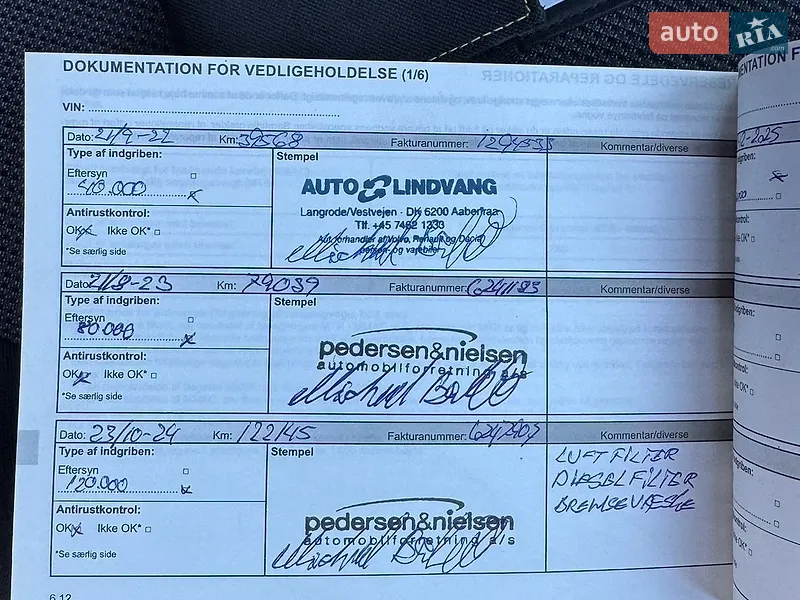 auto RIA .com
DOKUMENTATION FOR VEDLIGEHOLDELSE (1/6)
VIN:
Dato: 21/9-22 Km: 39568 Fakturanummer: Kommentar/diverse
Type af indgriben: Stempel
Eftersyn
40.000
Antirustkontrol:
OK Ikke OK*
*Se særlig side
AUTO LINDVANG
Langrode/Vestvejen · DK 6200 Aabenraa
Tlf. +45 7462 1233
Aut. forhandler af Volvo, Renault og Dacia
person- og varebiler
Dato: 21/8-23 Km: 79039 Fakturanummer: Kommentar/diverse
Type af indgriben: Stempel
Eftersyn
80.000
Antirustkontrol:
OK Ikke OK*
*Se særlig side
pedersen&nielsen
automobilforretning a/s
Dato: 23/10-24 Km: 122145 Fakturanummer: 6247807 Kommentar/diverse
Type af indgriben: Stempel
Eftersyn
120.000
Antirustkontrol:
OK Ikke OK*
*Se særlig side
pedersen&nielsen
automobilforretning a/s
LUFTFILTER
DIESELFILTER
BREMSEVÆSKE
6.12